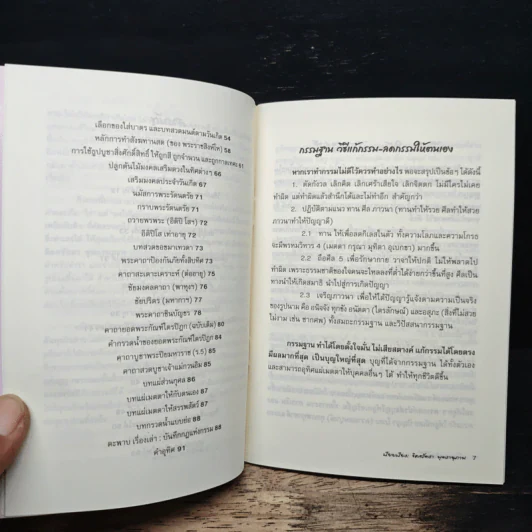 เลือกของใส่บาตร และบทสวดมนต์ตามวันเกิด 54
หลักการทำสังฆทานสด (ของ พระราชสิงห์โห) 60
การใช้ธูปบูชาสิ่งศักดิ์สิทธิ์ ให้ถูกสี ถูกจำนวน และถูกกาลเทศะ 61
ปลูกต้นไม้มงคลเสริมดวงในทิศต่างๆ 66
เสริมมงคลประจำวันเกิด 67
นมัสการพระรัตนตรัย 71
กราบพระรัตนตรัย 71
ถวายพรพระ (อิติปิ โสฯ) 71
อิติปิโส เท่าอายุ 71
บทสวดขอขมาเทวดา 71
พระคาถาป้องกันภัยทั้งสิบทิศ 73
คาถาสะเดาะเคราะห์ (ต่ออายุ) 75
ชัยมงคลคาถา (พาหุงฯ) 76
ชัยปริตร (มหากาฯ) 78
พระคาถาชินบัญชร 78
คาถายอดพระกัณฑ์ไตรปิฎก (ฉบับเดิม) 80
คำกรวดน้ำของยอดพระกัณฑ์ไตรปิฎก 84
คาถาบูชาพระปิยมหาราช (ร.5) 85
คาถาสวดบูชาเจ้าแม่กวนอิม 85
บทแผ่ส่วนกุศล 86
บทแผ่เมตตาให้กับตนเอง 87
บทแผ่เมตตาให้สรรพสัตว์ 87
บทกรวดน้ำแบบย่อ 88
ตะพาบ เรื่องเล่า : บันทึกกฎแห่งกรรม 88
คำอุทิศ 91
กรรมฐาน วิธีแก้กรรม-ลดกรรมให้ตนเอง
หากเราทำกรรมไม่ดีไว้ควรทำอย่างไร พอจะสรุปเป็นข้อๆ ได้ดังนี้
1. ตัดกังวล เลิกคิด เลิกเศร้าเสียใจ เลิกจิตตก ไม่มีใครไม่เคย
ทำผิด แต่ทำผิดแล้วสำนึกได้และไม่ทำอีก สำคัญกว่า
2. ปฏิบัติตามแนว ทาน ศีล ภาวนา (ทานทำให้รวย ศีลทำให้สวย
ภาวนาทำให้ปัญญาดี)
2.1 ทาน ให้เพื่อลดกิเลสในตัว ทั้งความโลภและความโกรธ
จะมีพรหมวิหาร 4 (เมตตา กรุณา มุทิตา อุเบกขา) มากขึ้น
2.2 ถือศีล 5 เพื่อรักษากาย วาจาให้ปกติ ไม่ให้พลาดไปทำผิด
เพราะธรรมชาติของใจคนจะไหลลงที่ต่ำได้ง่ายกว่าขึ้นที่สูง ศีลเป็น
ทางนำให้เกิดสมาธิ นำไปสู่การเกิดปัญญา
2.3 เจริญภาวนา เพื่อให้ได้ปัญญารู้แจ้งตามความเป็นจริง
ของรูปนาม คือ อนิจจัง ทุกขัง อนัตตา (ไตรลักษณ์) และอสุภะ (สิ่งที่ไม่สวย
ไม่งาม เช่น ซากศพ) ทั้งสมถะกรรมฐาน และวิปัสสนากรรมฐาน
กรรมฐาน ทำได้โดยตั้งใจมั่น ไม่เสียสตางค์ แก้กรรมได้โดยตรง
มีผลมากที่สุด เป็นบุญใหญ่ที่สุด บุญที่ได้จากกรรมฐาน ได้ทั้งตัวเอง
และสามารถอุทิศแผ่เมตตาให้บุคคลอื่นๆ ได้ ทำให้ทุกชีวิตดีขึ้น
7